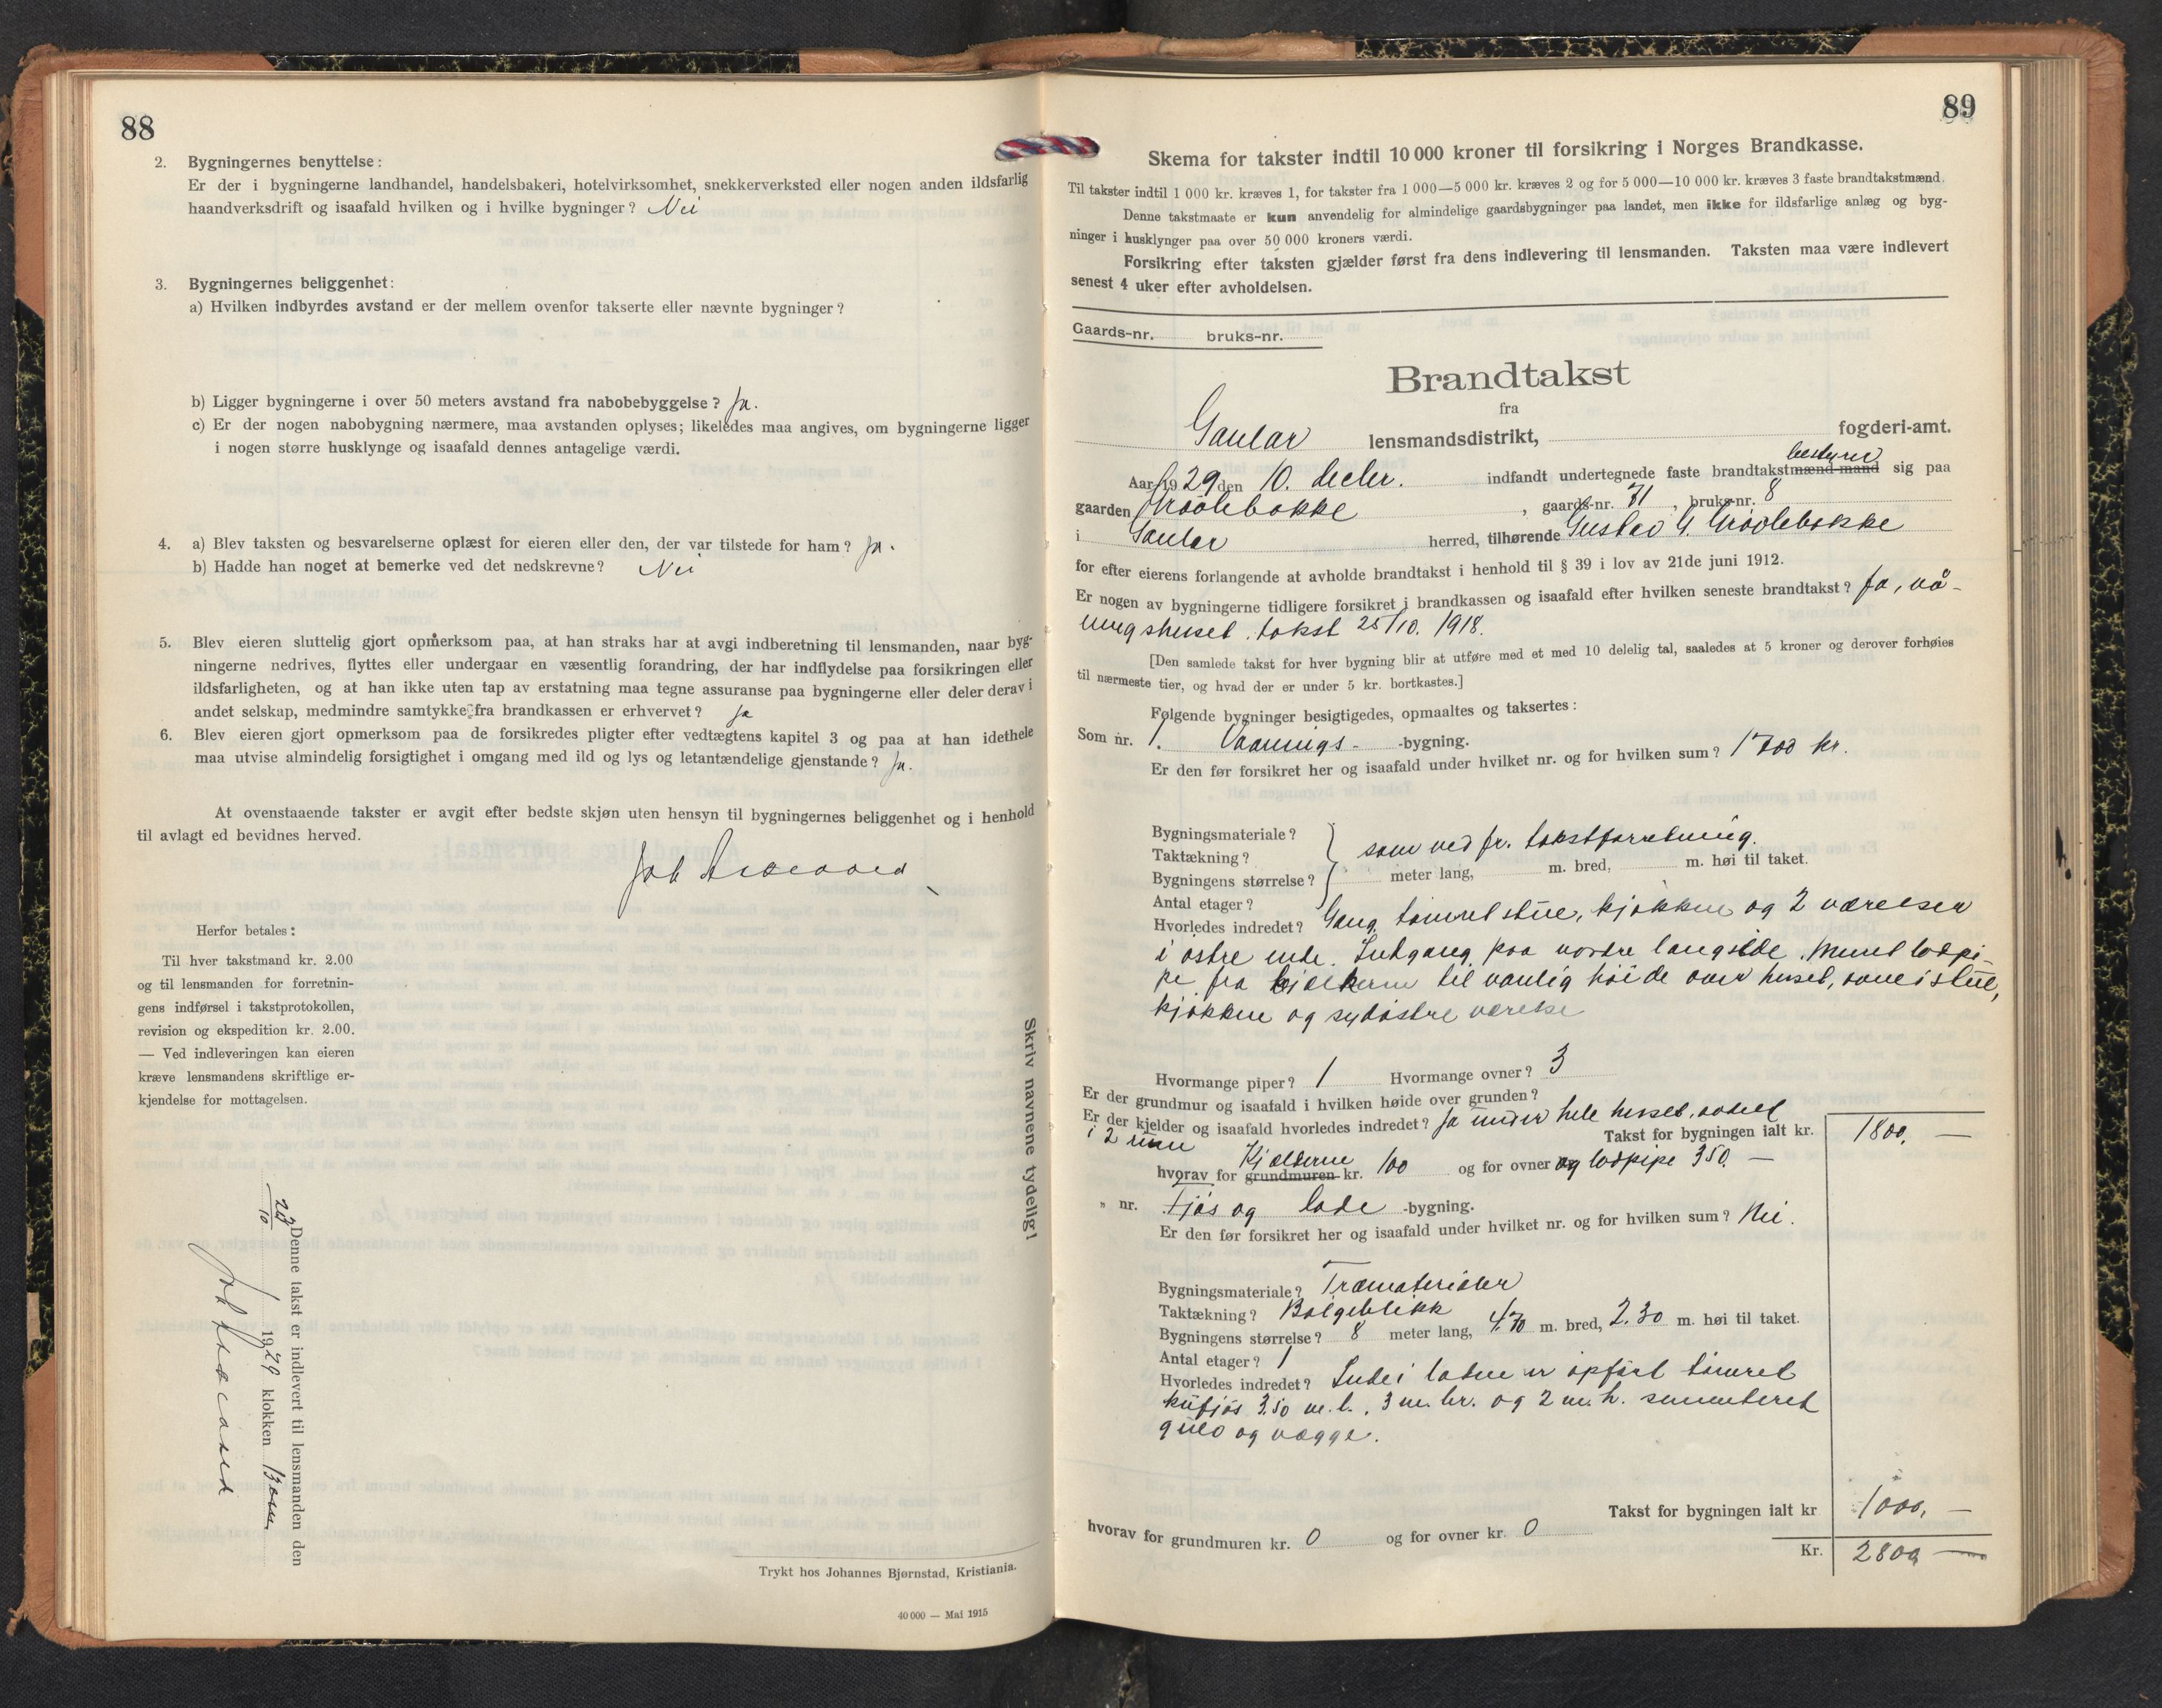 88
2. Bygningernes benyttelse:
Er der i bygningerne landhandel, handelsbakeri, hotelvirksomhet, snekkerverksted eller nogen anden ildsfarlig
haandverksdrift og isaafald hvilken og i hvilke bygninger? Nei
3. Bygningernes beliggenhet:
a) Hvilken indbyrdes avstand er der mellem ovenfor takserte eller nævnte bygninger?
b) Ligger bygningerne i over 50 meters avstand fra nabobebyggelse? Ja.
c) Er der nogen nabobygning nærmere, maa avstanden oplyses; likeledes maa angives, om bygningerne ligger
i nogen større husklynge og isaafald dennes antagelige værdi.
4. a) Blev taksten og besvarelserne oplæst for eieren eller den, der var tilstede for ham? Ja.
b) Hadde han noget at bemerke ved det nedskrevne? Nei
5. Blev eieren sluttelig gjort opmerksom paa, at han straks har at avgi indberetning til lensmanden, naar byg-
ningerne nedrives, flyttes eller undergaar en væsentlig forandring, der har indflydelse paa forsikringen eller
ildsfarligheten, og at han ikke uten tap av erstatning maa tegne assuranse paa bygningerne eller deler derav i
andet selskap, medmindre samtykke fra brandkassen er erhvervet? Ja
6. Blev eieren gjort opmerksom paa de forsikredes pligter efter vedtægtens kapitel 3 og paa at han idethele
maa utvise almindelig forsigtighet i omgang med ild og lys og letantændelige gjenstande? Ja.
At ovenstaaende takster er avgit efter bedste skjøn uten hensyn til bygningernes beliggenhet og i henhold
til avlagt ed bevidnes herved.
Herfor betales:
Til hver takstmand kr. 2.00
og til lensmanden for forretnin-
gens indførsel i takstprotokollen,
revision og ekspedition kr. 2.00.
— Ved indleveringen kan eieren
kræve lensmandens skriftlige er-
kjendelse for mottagelsen.
Skriv navnene tydelig!
Denne takst er indlevert til lensmanden den
1929 klokken
Trykt hos Johannes Bjørnstad, Kristiania.
40 000 — Mai 1915
89
Skema for takster indtil 10 000 kroner til forsikring i Norges Brandkasse.
Til takster indtil 1 000 kr. kræves 1, for takster fra 1 000—5 000 kr. kræves 2 og for 5 000—10 000 kr. kræves 3 faste brandtakstmænd.
Denne takstmaate er kun anvendelig for almindelige gaardsbygninger paa landet, men ikke for ildsfarlige anlæg og byg-
ninger i husklynger paa over 50 000 kroners værdi.
Forsikring efter taksten gjælder først fra dens indlevering til lensmanden. Taksten maa være indlevert
senest 4 uker efter avholdelsen.
Gaards-nr. bruks-nr.
Brandtakst
fra
Gaular lensmandsdistrikt, fogderi-amt.
bestyrer
Aar 1929 den 10. decbr. indfandt undertegnede faste brandtakstmænd mand sig paa
gaarden , gaards-nr. 71, bruks-nr. 8
i Gaular herred, tilhørende Gustav G.
for efter eierens forlangende at avholde brandtakst i henhold til § 39 i lov av 21de juni 1912.
Er nogen av bygningerne tidligere forsikret i brandkassen og isaafald efter hvilken seneste brandtakst? Ja, vå-
ningshuset, takst 25/10. 1918.
[Den samlede takst for hver bygning blir at utføre med et med 10 delelig tal, saaledes at 5 kroner og derover forhøies
til nærmeste tier, og hvad der er under 5 kr. bortkastes.]
Følgende bygninger besigtigedes, opmaaltes og taksertes:
Som nr. 1. Vaanings- -bygning.
Er den før forsikret her og isaafald under hvilket nr. og for hvilken sum? 1700 kr.
Bygningsmateriale?
Taktækning? som ved fr. takstforretning.
Bygningens størrelse? meter lang, m. bred, m. høi til taket.
Antal etager?
Hvorledes indredet? Gang, tømret stue, kjøkken og 2 værelser
i østre ende. Indgang paa nordre langside. Muret lodpi-
pe fra kjelderen til vanlig høide over huset, ovne i stue,
kjøkken og sydøstre værelse
Hvormange piper? 1 Hvormange ovner? 3
Er der grundmur og isaafald i hvilken høide over grunden?
Er der kjelder og isaafald hvorledes indredet? Ja under hele huset, avdelt
i 2 rum Takst for bygningen ialt kr. 1800, —
hvorav for grundmuren kr. Kjelderne 100 og for ovner og lodpipe 350. —
„ nr. Fjøs og lade -bygning.
Er den før forsikret her og isaafald under hvilket nr. og for hvilken sum? Nei.
Bygningsmateriale? Træmaterialer
Taktækning? Bølgeblikk
Bygningens størrelse? 8 meter lang, 4.70 m. bred, 2.30 m. høi til taket.
Antal etager? 1
Hvorledes indredet? Inde i laden er opført tømret
kufjøs 3.50 m. l., 3 m. br. og 2 m. h. sementeret
gulv og vægge.
Takst for bygningen ialt kr 1000, —
hvorav for grundmuren kr. 0 og for ovner kr. 0
Kr. 2800 —